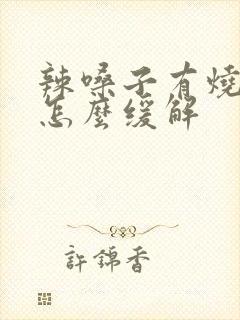 辣嗓子有燒
怎麼緩解
許錦香